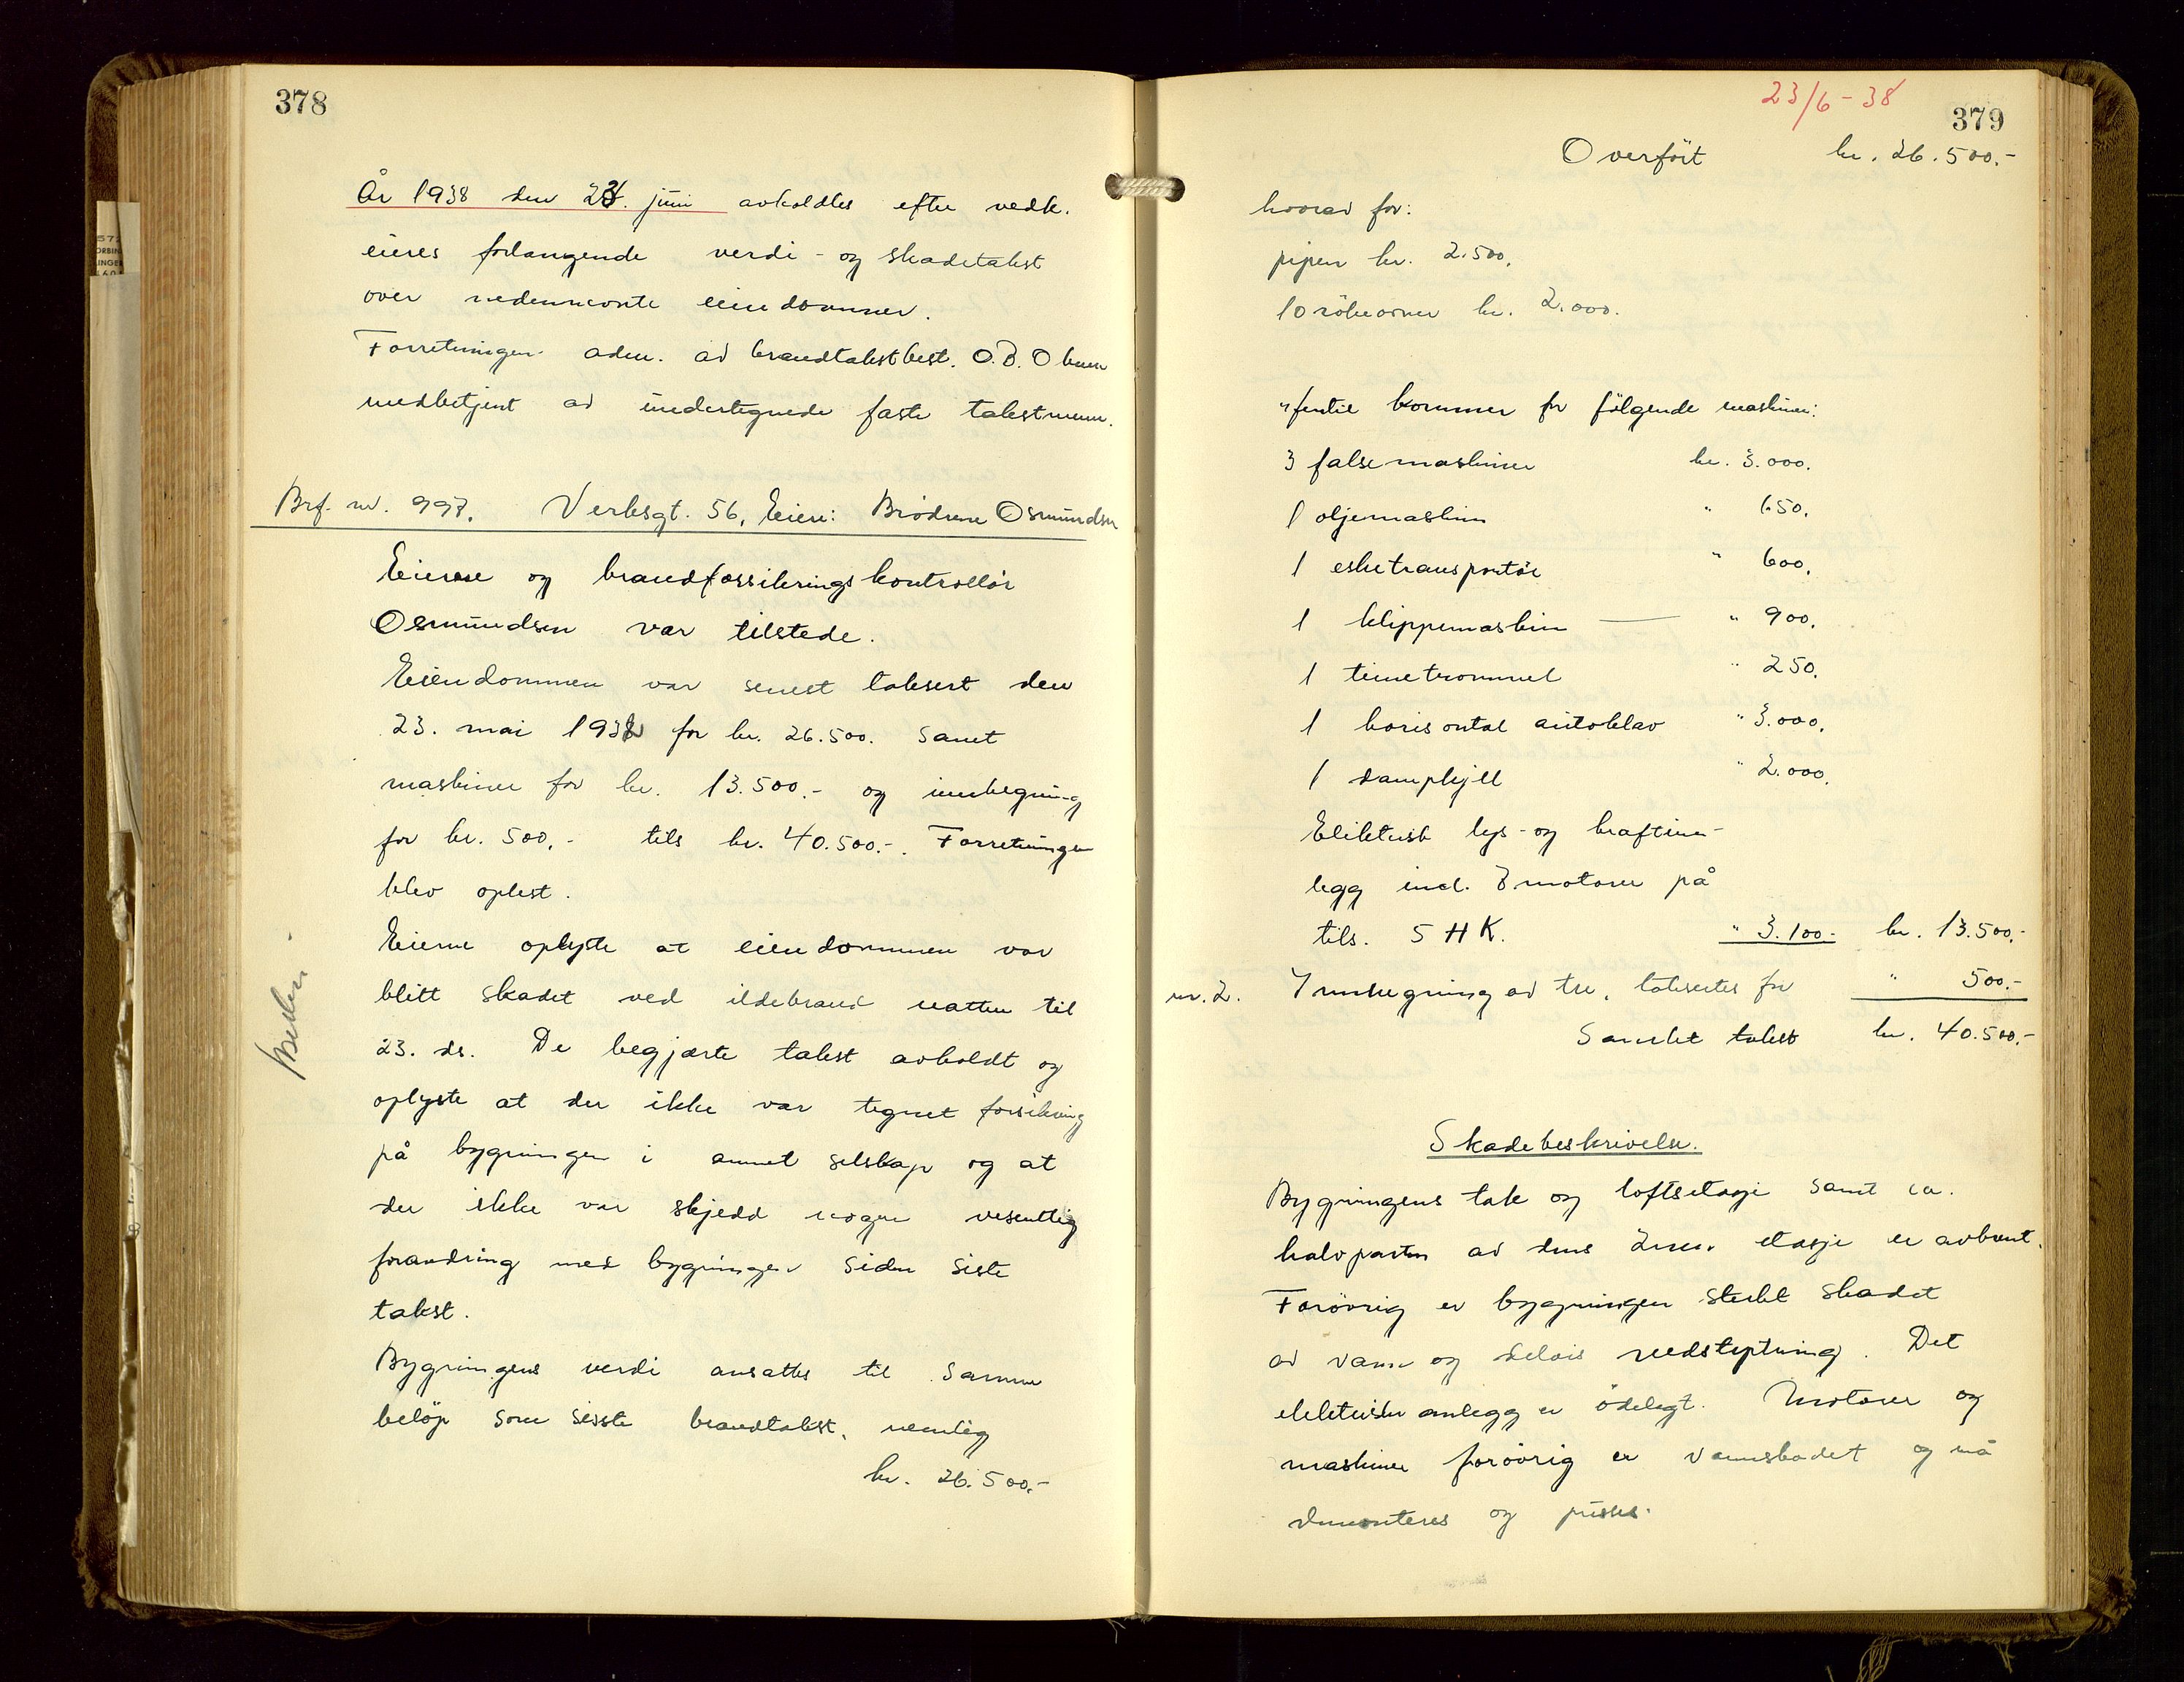 378
År 1938 den 23. juni avholdtes efter vedk.
eieres forlangende verdi- og skadetakst
over nedennevnte eiendommer.
Forretningen adm. av brandtakstbest. O.B. Olsen
medbetjent av undertegnede faste takstmenn.
Brf. nr. 997. Verksgt. 56, Eiere: Brødrene Osmundsen
Eierne og brandforsikringskontrollør
Osmundsen var tilstede.
Eiendommen var senest taksert den
23. mai 1932 for kr. 26.500. Samt
maskiner for kr. 13.500.- og innhegning
for kr. 500.- tils kr. 40.500.-. Forretningen
blev oplest.
Eierne oplyste at eiendommen var
blitt skadet ved ildebrand natten til
23. ds. De begjærte takst avholdt og
oplyste at der ikke var tegnet forsikring
på bygningen i annet selskap og at
der ikke var skjedd nogen vesentlig
forandring med bygningen siden siste
takst.
Bygningens verdi ansattes til samme
beløp som sisste brandtakst, nemlig
kr. 26.500.-
23/6-38
379
Overført kr. 26.500.-
hvorav for:
pipen kr. 2.500.
10 røkeovner kr. 2.000.
hertil kommer for følgende maskiner:
3 falsemaskiner kr. 3.000.
1 oljemaskin " 650.
1 esketransportør " 600.
1 klippemaskin " 900.
1 tinetrommel " 250.
1 horisontal autoklav " 3.000.
1 dampkjell " 2.000.
Elektrisk lys- og kraftinn-
legg incl. 7 motorer på
tils. 5 HK. " 3.100- kr. 13.500.-
nr. 2. Innhegning av tre, taksertes for " 500.-
Samlet takst kr. 40.500.-
Skadebeskrivelse.
Bygningens tak og loftsetasje samt ca.
halvparten av dens 2nen etasje er avbrent.
Forøvrig er bygningen sterkt skadet
av vann og delvis nedstøptning. Det
elektriske anlegg er ødelagt. Motorer og
maskiner forøvrig er vannskadet og må
demonteres og pusses.